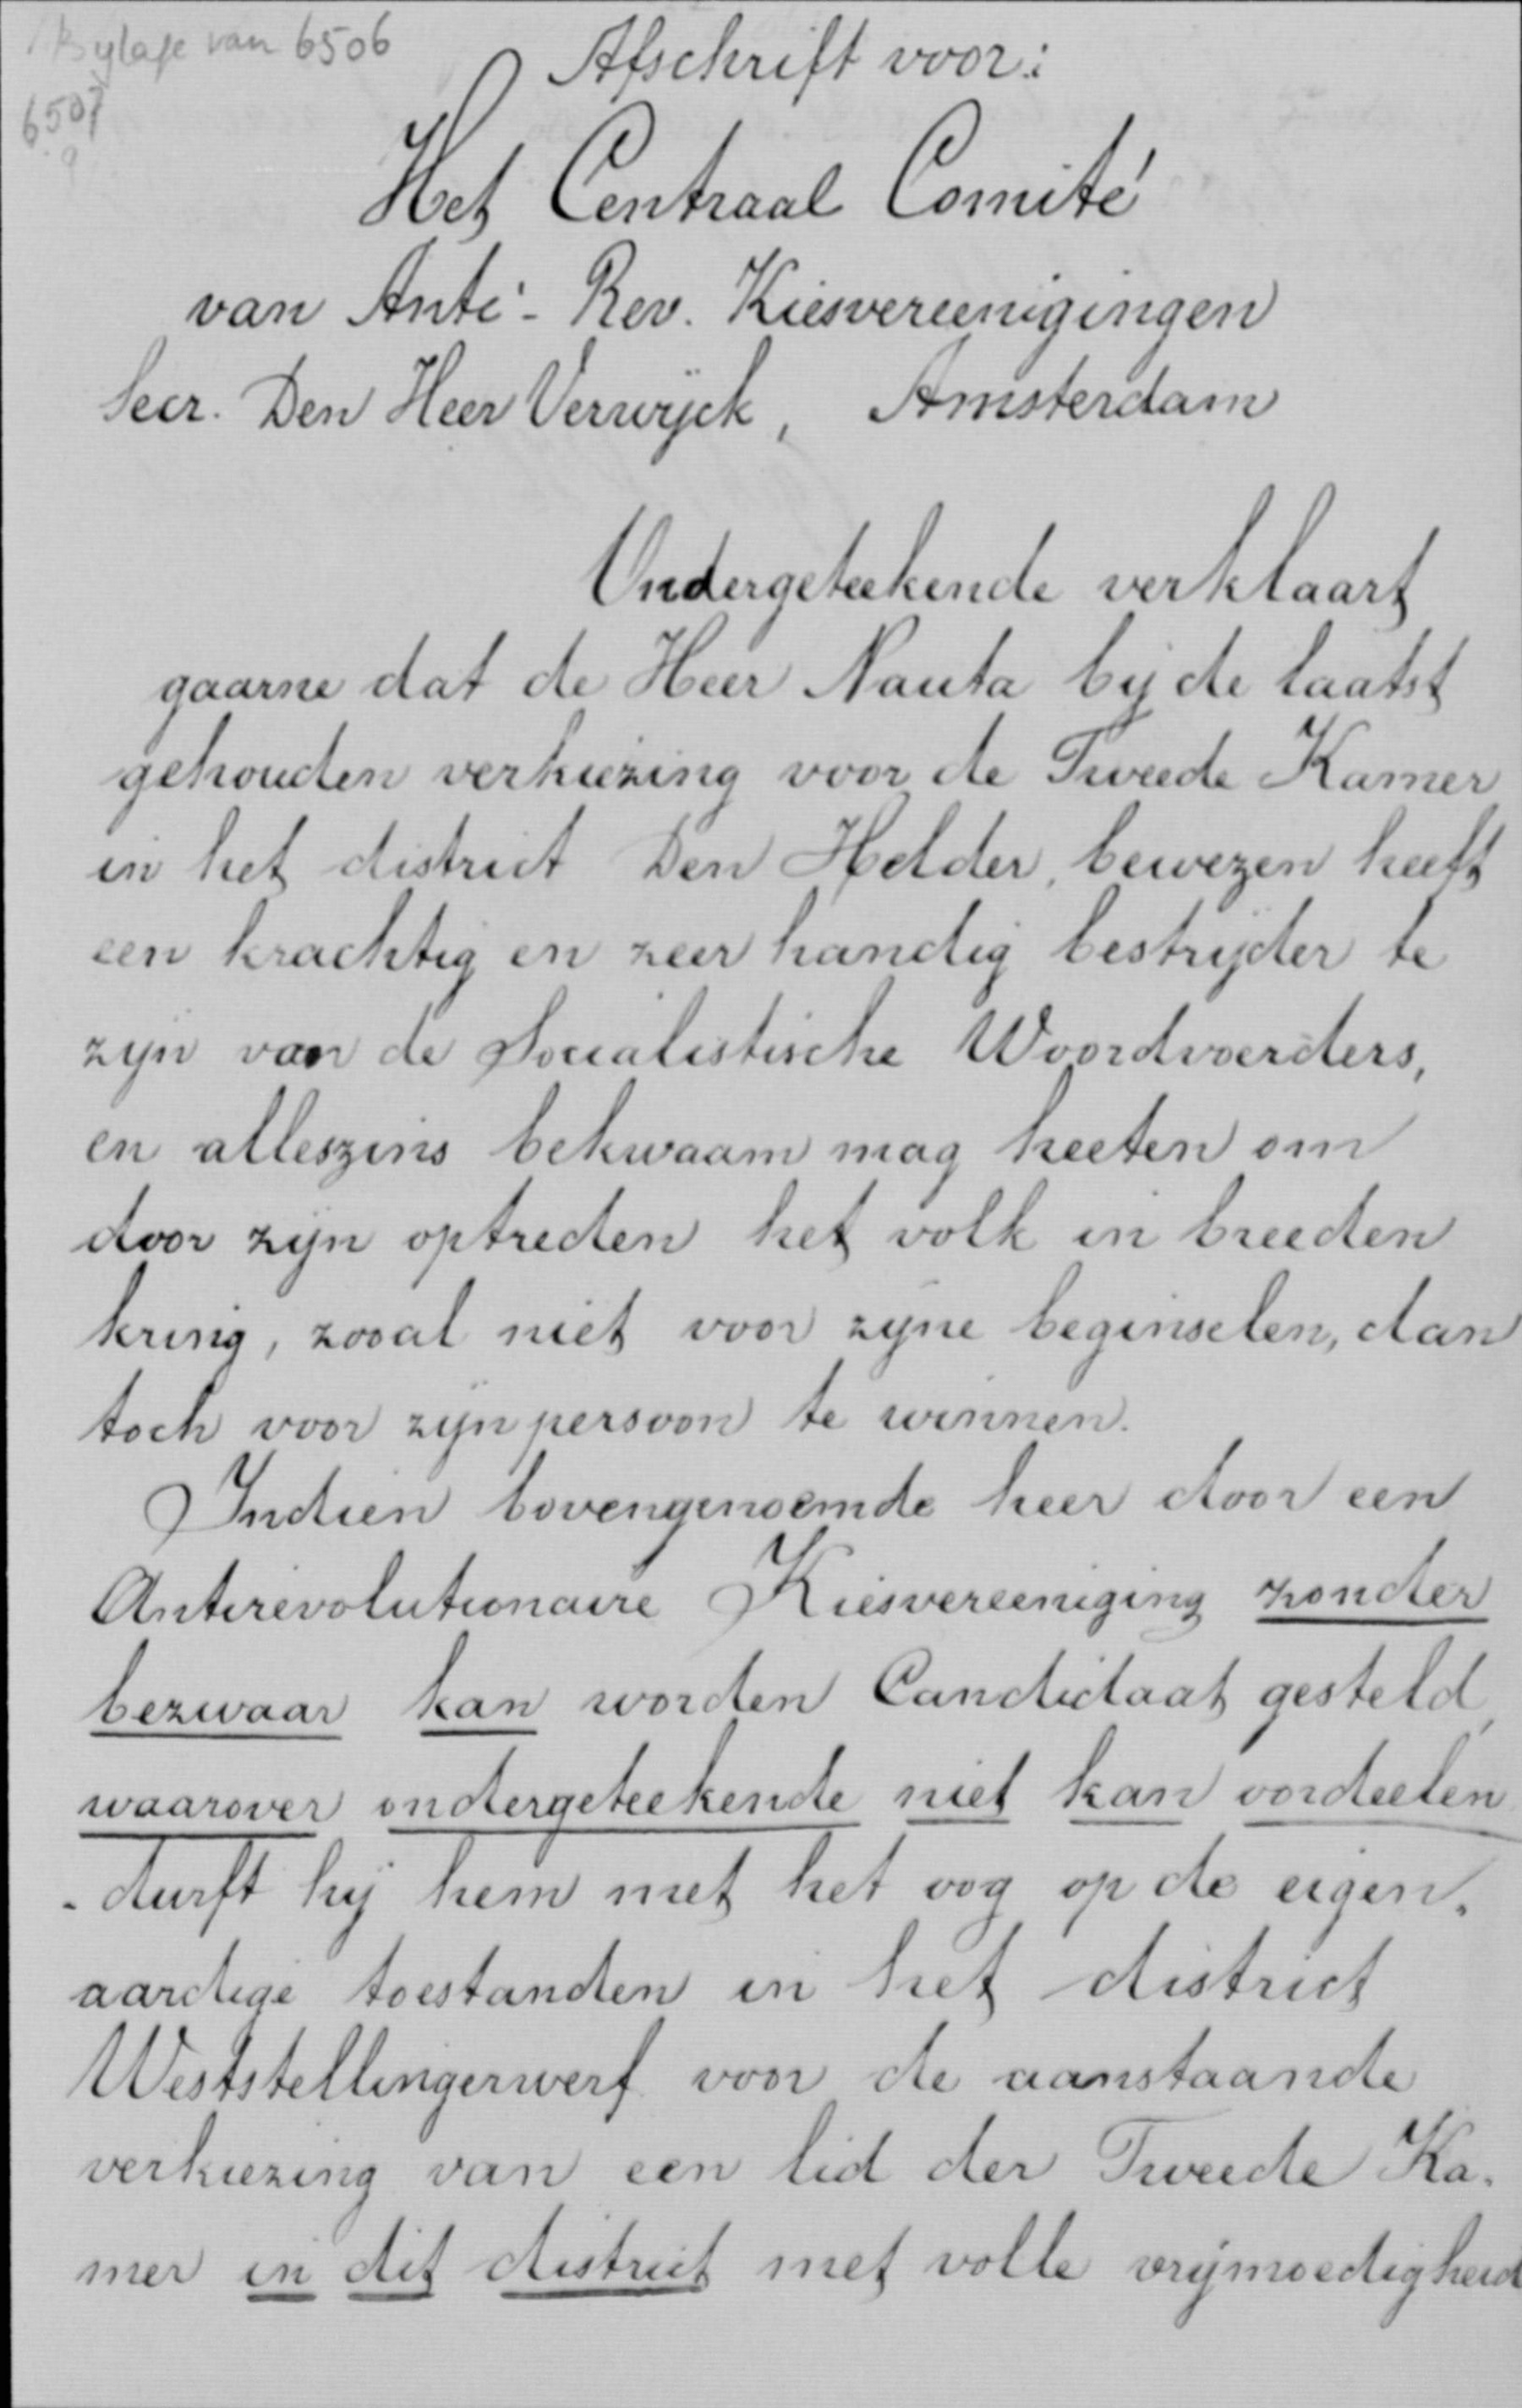 Bylage van 6506
6507
Afschrift voor:
Het Centraal Comité
van Anti-Rev. Kiesvereenigingen
Secr. Den Heer Verwijck, Amsterdam
Ondergeteekende verklaart
gaarne dat de Heer Nauta bij de laatst
gehouden verkiezing voor de Tweede Kamer
in het district Den Helder, bewezen heeft
een krachtig en zeer handig bestrijder te
zijn van de Socialistische Woordvoerders,
en alleszins bekwaam mag heeten om
door zijn optreden het volk in breeden
kring, zooal niet voor zijne beginselen, dan
toch voor zijn persoon te winnen.
Indien bovengenoemde heer door een
Antirevolutionaire Kiesvereeniging zonder
bezwaar kan worden Candidaat gesteld,
waarover ondergeteekende niet kan oordeelen
- durft hij hem met het oog op de eigen-
aardige toestanden in het district
Weststellingerwerf voor de aanstaande
verkiezing van een lid der Tweede Ka-
mer in dit district met volle vrijmoedigheid